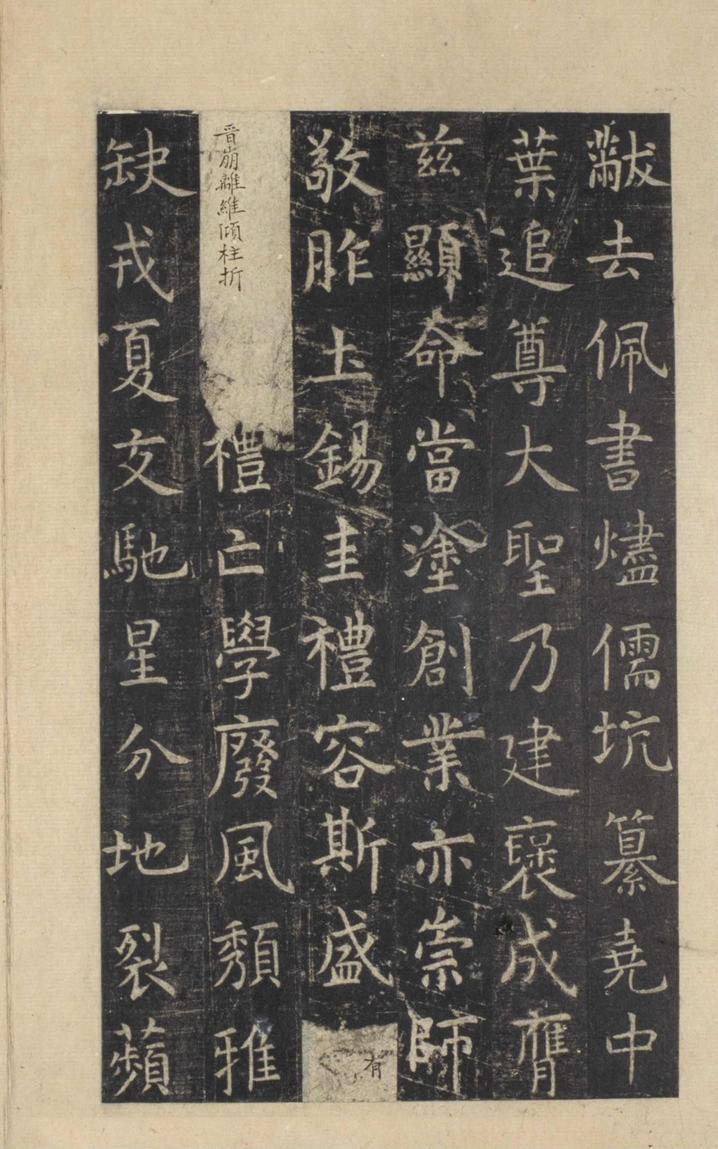 黻去佩書燼儒坑纂堯中
葉追尊大聖乃建褒成膺
兹顯命當塗創業亦崇師
敬胙土錫圭禮容斯盛有
晋崩離維傾柱折禮亡學廢風頽雅
缺戎夏交馳星分地裂蘋